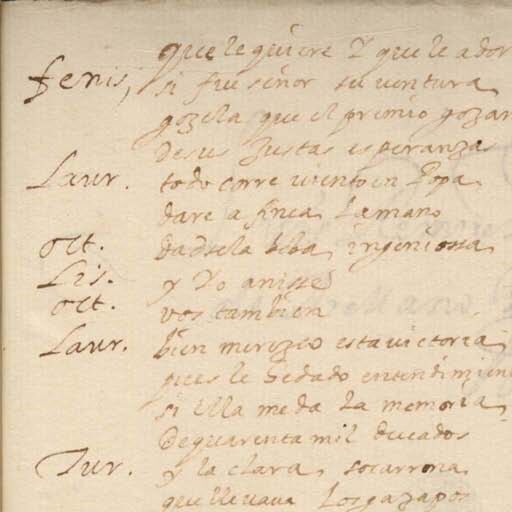 que le quiere Y que le ador
fenis, si fue señor su ventura
gozela que el premio gozar
de sus Justas esperanzas
Laur. todo corre viento en Popa
dare a finea La mano
Ott. dadsela boba ingeniossa
Lis. y Yo a nisse
Ott. vos tambien
Laur. bien merezco esta victoria
pues le he dado entendimien
si ella me da La memoria
de quarenta mil ducados
Tur. y la clara socarrona
que llevava Los gazapos